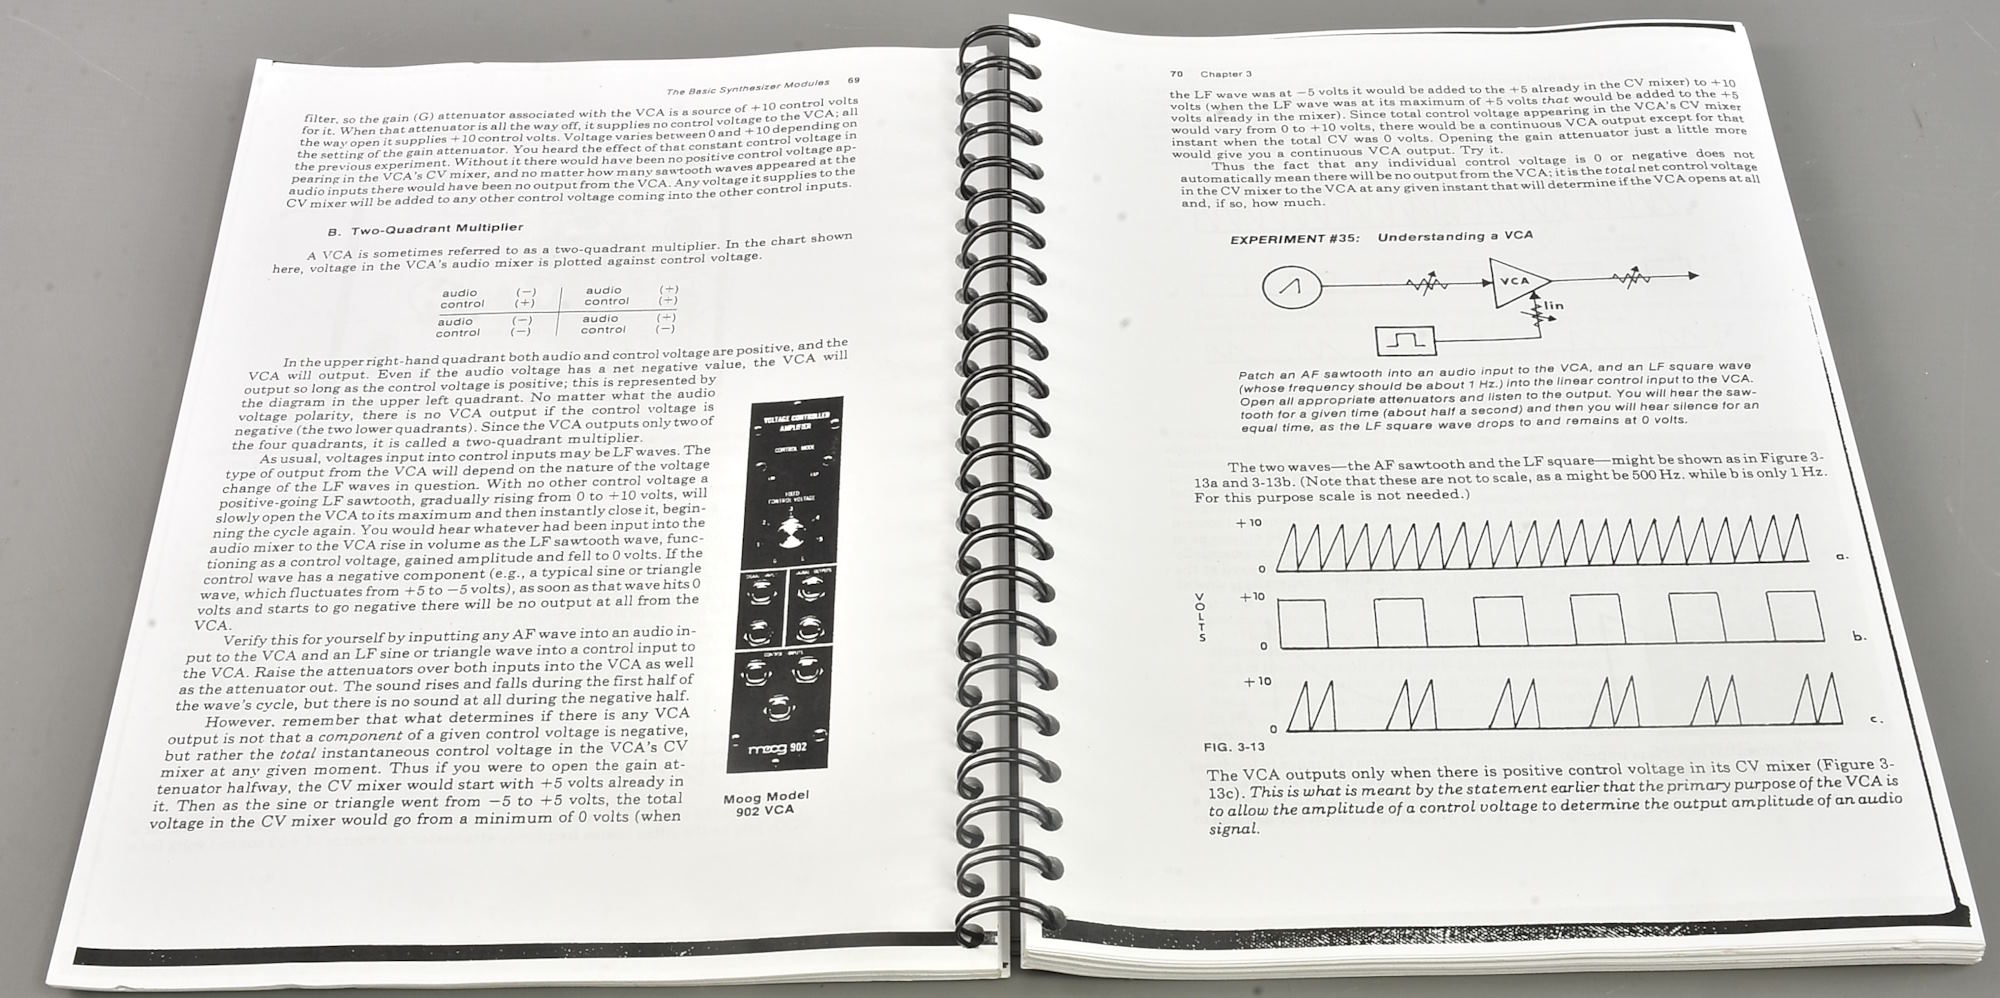 The Basic Synthesizer Modules 69
filter, so the gain (G) attenuator associated with the VCA is a source of +10 control volts
for it. When that attenuator is all the way off, it supplies no control voltage to the VCA; all
the way open it supplies +10 control volts. Voltage varies between 0 and +10 depending on
the setting of the gain attenuator. You heard the effect of that constant control voltage in
the previous experiment. Without it there would have been no positive control voltage ap-
pearing in the VCA's CV mixer, and no matter how many sawtooth waves appeared at the
audio inputs there would have been no output from the VCA. Any voltage it supplies to the
CV mixer will be added to any other control voltage coming into the other control inputs.
B. Two-Quadrant Multiplier
A VCA is sometimes referred to as a two-quadrant multiplier. In the chart shown
here, voltage in the VCA's audio mixer is plotted against control voltage.
audio (−) audio (+)
control (+) control (+)
audio (−) audio (+)
control (−) control (−)
In the upper right-hand quadrant both audio and control voltage are positive, and the
VCA will output. Even if the audio voltage has a net negative value, the VCA will
output so long as the control voltage is positive; this is represented by
the diagram in the upper left quadrant. No matter what the audio
voltage polarity, there is no VCA output if the control voltage is
negative (the two lower quadrants). Since the VCA outputs only two of
the four quadrants, it is called a two-quadrant multiplier.
As usual, voltages input into control inputs may be LF waves. The
type of output from the VCA will depend on the nature of the voltage
change of the LF waves in question. With no other control voltage a
positive-going LF sawtooth, gradually rising from 0 to +10 volts, will
slowly open the VCA to its maximum and then instantly close it, begin-
ning the cycle again. You would hear whatever had been input into the
audio mixer to the VCA rise in volume as the LF sawtooth wave, func-
tioning as a control voltage, gained amplitude and fell to 0 volts. If the
control wave has a negative component (e.g., a typical sine or triangle
wave, which fluctuates from +5 to −5 volts), as soon as that wave hits 0
volts and starts to go negative there will be no output at all from the
VCA.
Verify this for yourself by inputting any AF wave into an audio in-
put to the VCA and an LF sine or triangle wave into a control input to
the VCA. Raise the attenuators over both inputs into the VCA as well
as the attenuator out. The sound rises and falls during the first half of
the wave's cycle, but there is no sound at all during the negative half.
However, remember that what determines if there is any VCA
output is not that a component of a given control voltage is negative,
but rather the total instantaneous control voltage in the VCA's CV
mixer at any given moment. Thus if you were to open the gain at-
tenuator halfway, the CV mixer would start with +5 volts already in
it. Then as the sine or triangle went from −5 to +5 volts, the total
voltage in the CV mixer would go from a minimum of 0 volts (when
VOLTAGE CONTROLLED
AMPLIFIER
CONTROL MODE
FIXED
CONTROL VOLTAGE
moog 902
Moog Model
902 VCA
70 Chapter 3
the LF wave was at −5 volts it would be added to the +5 already in the CV mixer) to +10
volts (when the LF wave was at its maximum of +5 volts that would be added to the +5
volts already in the mixer). Since total control voltage appearing in the VCA's CV mixer
would vary from 0 to +10 volts, there would be a continuous VCA output except for that
instant when the total CV was 0 volts. Opening the gain attenuator just a little more
would give you a continuous VCA output. Try it.
Thus the fact that any individual control voltage is 0 or negative does not
automatically mean there will be no output from the VCA; it is the total net control voltage
in the CV mixer to the VCA at any given instant that will determine if the VCA opens at all
and, if so, how much.
EXPERIMENT #35: Understanding a VCA
VCA
lin
Patch an AF sawtooth into an audio input to the VCA, and an LF square wave
(whose frequency should be about 1 Hz.) into the linear control input to the VCA.
Open all appropriate attenuators and listen to the output. You will hear the saw-
tooth for a given time (about half a second) and then you will hear silence for an
equal time, as the LF square wave drops to and remains at 0 volts.
The two waves—the AF sawtooth and the LF square—might be shown as in Figure 3-
13a and 3-13b. (Note that these are not to scale, as a might be 500 Hz. while b is only 1 Hz.
For this purpose scale is not needed.)
+10
0
a.
VOLTS
+10
0
b.
+10
0
c.
FIG. 3-13
The VCA outputs only when there is positive control voltage in its CV mixer (Figure 3-
13c). This is what is meant by the statement earlier that the primary purpose of the VCA is
to allow the amplitude of a control voltage to determine the output amplitude of an audio
signal.